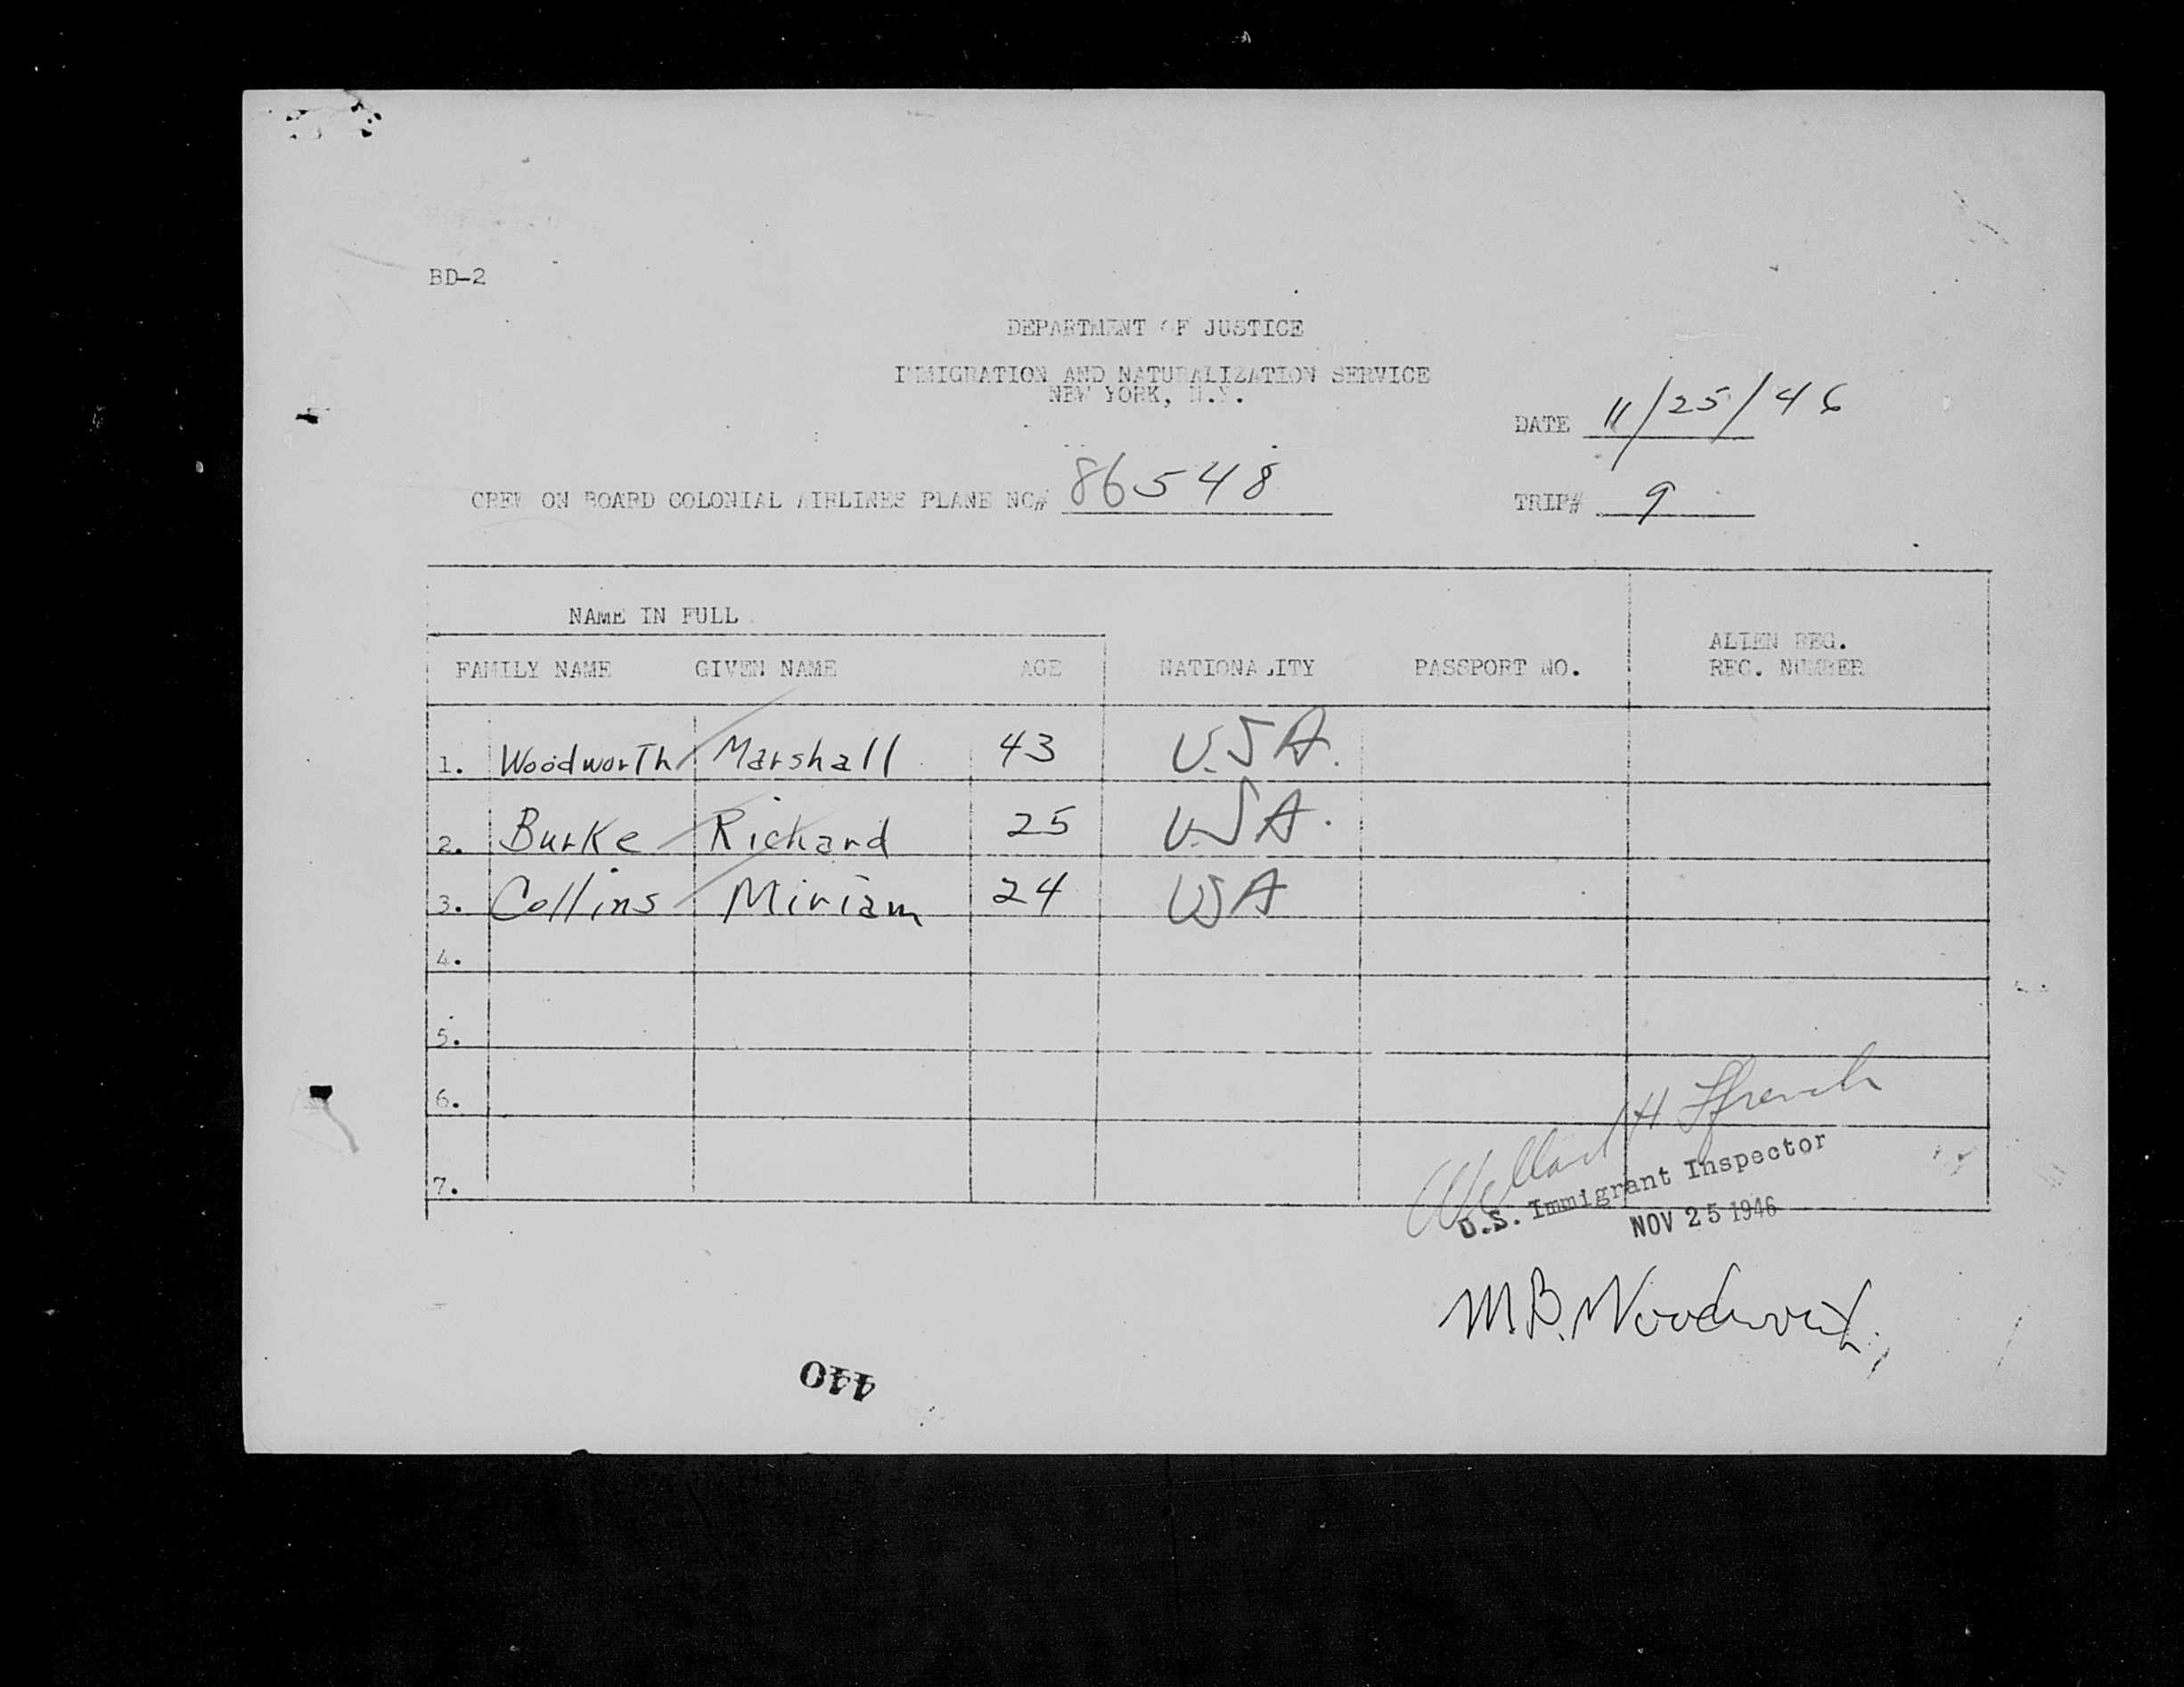 BD-2
DEPARTMENT OF JUSTICE
IMMIGRATION AND NATURALIZATION SERVICE
NEW YORK, N.Y.
DATE 11/25/46
CREW ON BOARD COLONIAL AIRLINES PLANE NC# 86548
TRIP# 9
NAME IN FULL
FAMILY NAME GIVEN NAME AGE NATIONALITY PASSPORT NO. ALIEN REG.
REC. NUMBER
1. Woodworth Marshall 43 U.S.A.
2. Burke Richard 25 U.S.A.
3. Collins Miriam 24 USA
4.
5.
6.
7.
H Ffrench
U.S. Immigrant Inspector
NOV 25 1946
M.B. Woodworth
440